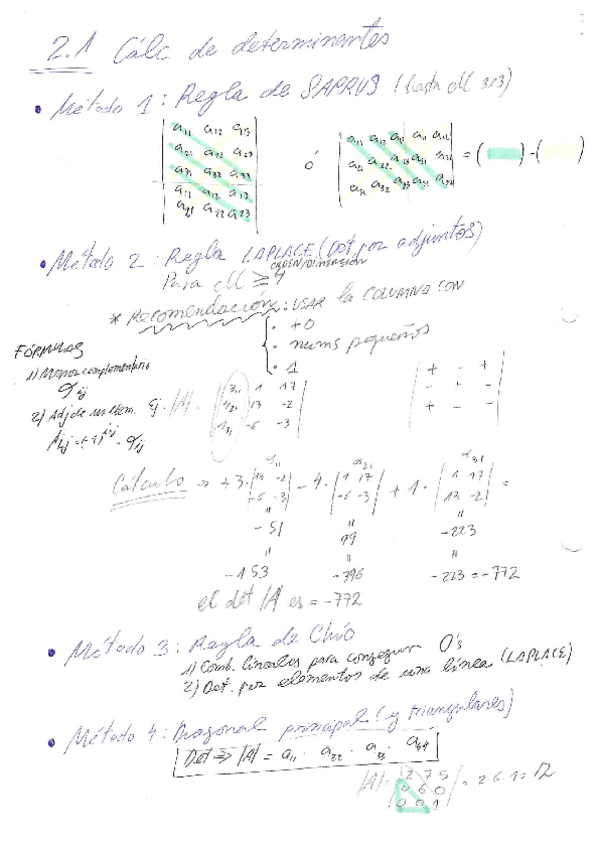 2.1 Cálc de determinantes
• Método 1: Regla de SARRUS (hasta M 3x3)
a11 a12 a13
a21 a22 a23
a31 a32 a33
a11 a12 a13
a21 a22 a23
ó
a11 a12 a13 a11 a12
a21 a22 a23 a21
a31 a32 a33 a31
= ( ) - ( )
• Método 2: Regla LAPLACE (Det por adjuntos)
Para M ≥ 4 ORDEN/DIMENSIÓN
* Recomendación: USAR la COLUMNA CON
· +0
· nums pequeños
· 1
FÓRMULAS
1) Menor complementario
αij
2) Adj de un elem.
Aij = (-1)^i+j · αij
Ej. |A| =
3 1 17
4 13 -2
1 -6 -3
+ - +
- + -
+ - -
Cálculo → +3 · |13 -2 / -6 -3| - 4 · |1 17 / -6 -3| + 1 · |1 17 / 13 -2| =
α11 α21 α31
" " "
-51 99 -223
" " "
-153 -396 -223 = -772
el det |A| es = -772
• Método 3: Regla de Chio
1) Comb. lineales para conseguir 0's
2) Det. por elementos de una línea (LAPLACE)
• Método 4: Diagonal principal (y triangulares)
Det => |A| = a11 · a22 · a33 · a44
|A| = |2 7 5 / 0 6 0 / 0 0 1| = 2·6·1 = 12